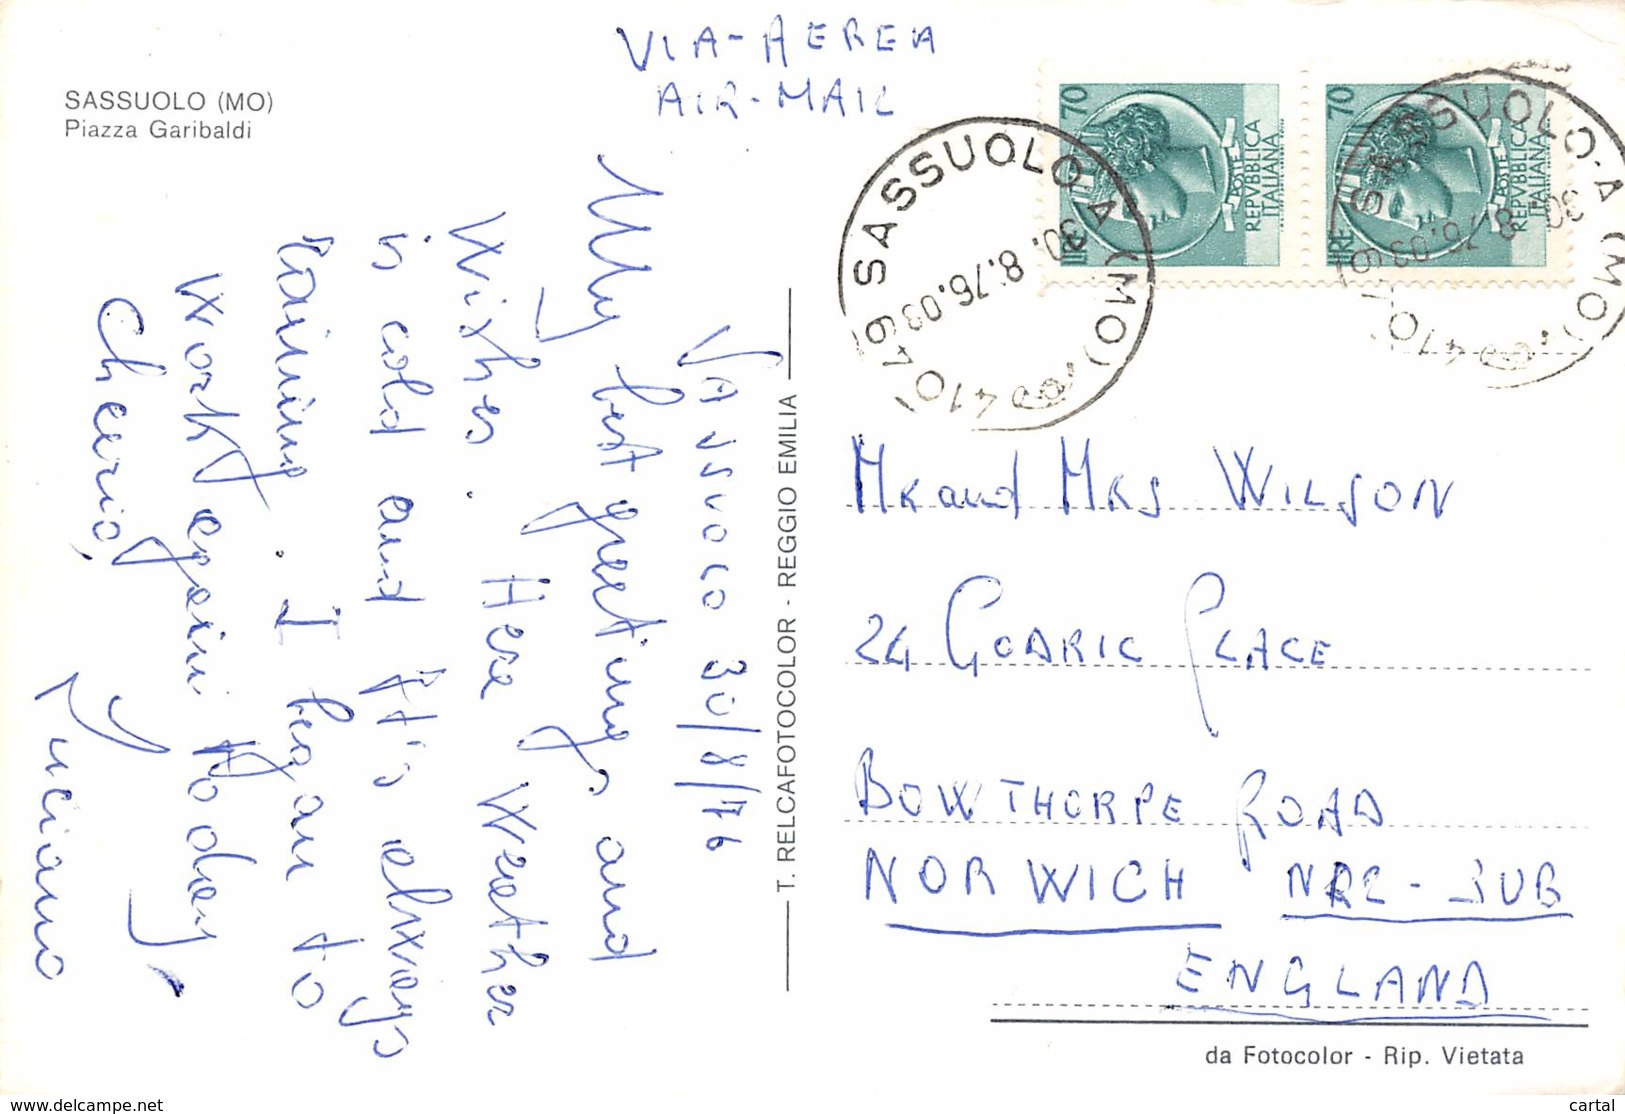 SASSUOLO (MO)
Piazza Garibaldi
VIA-AEREA
AIR-MAIL
SASSUOLO 30/8/76
My best greetings and
wishes. Here weather
is cold and it's always
raining. I began to
work again to day
Cheerio,
Luciano
T. RELCAFOTOCOLOR - REGGIO EMILIA
LIRE 70
POSTE
REPVBBLICA
ITALIANA
LIRE 70
POSTE
REPVBBLICA
ITALIANA
41049 SASSUOLO A (MO)
30. 8.76.03
41049 SASSUOLO A (MO)
30. 8.76.03
MR and MRS WILSON
24 GODRIC PLACE
BOWTHORPE ROAD
NORWICH NR2-3UB
ENGLAND
da Fotocolor - Rip. Vietata
www.delcampe.net
cartal